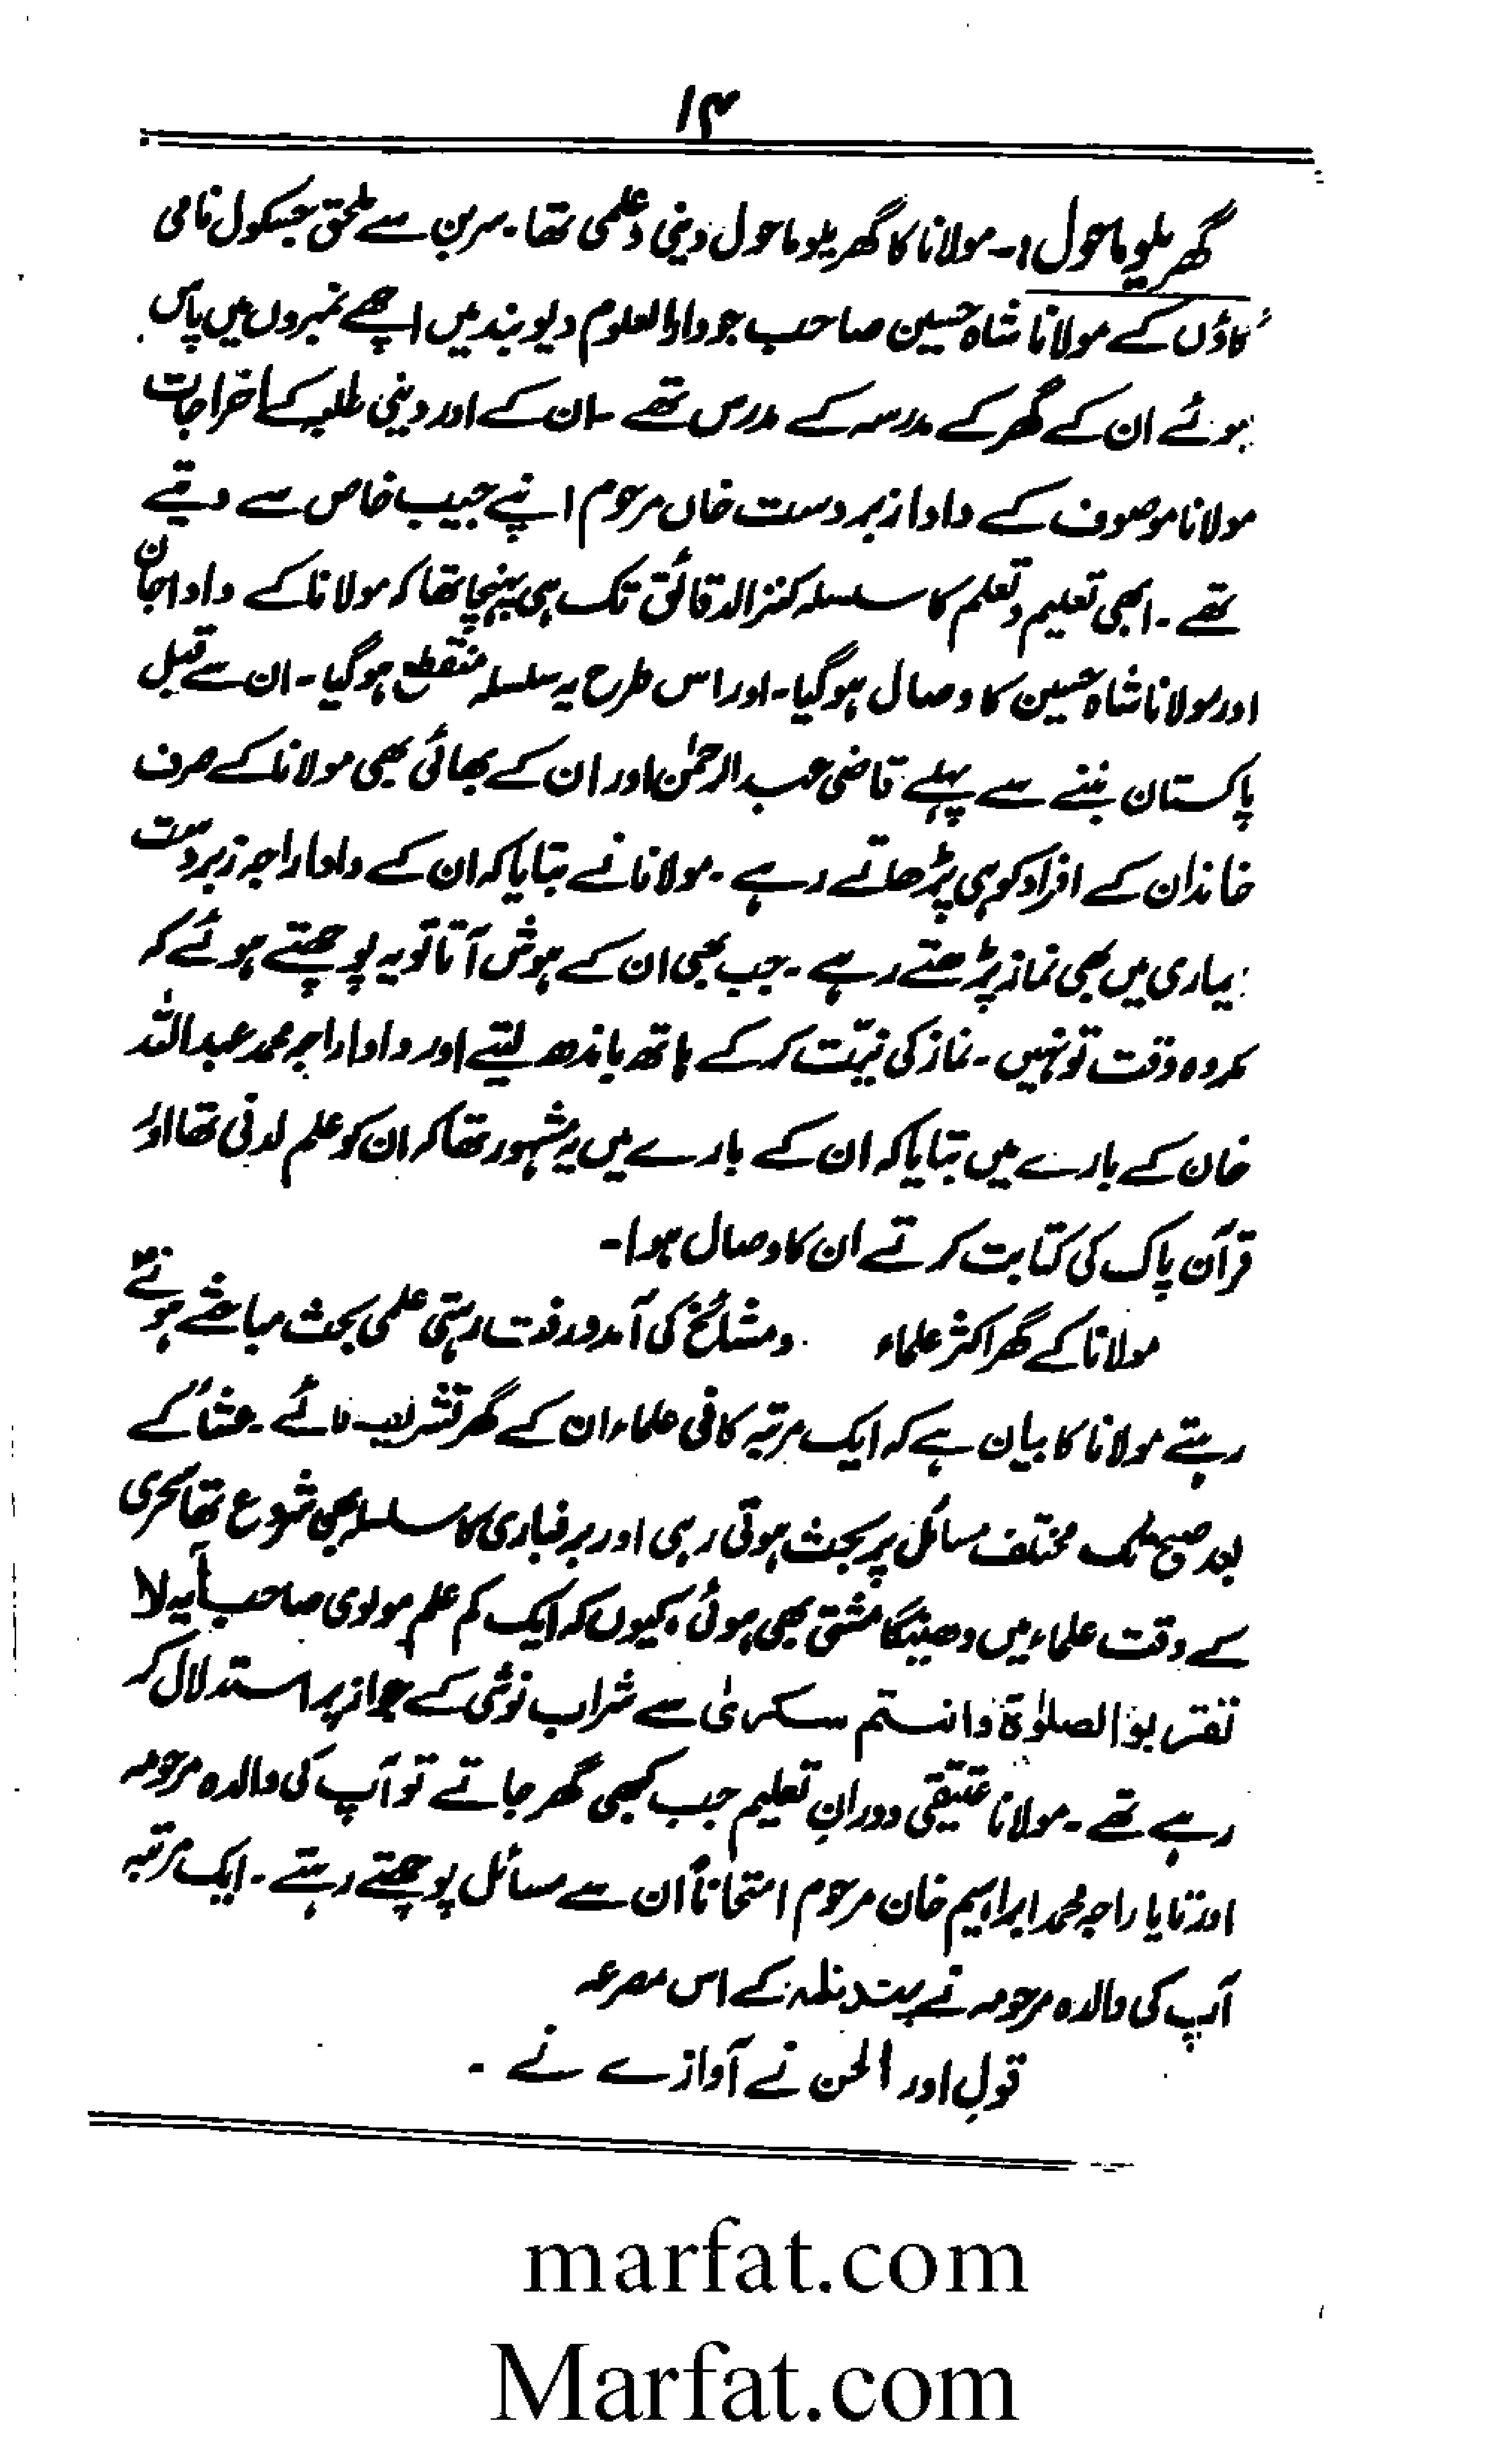 ۱۴
گھریلو ماحول :۔ مولانا کا گھریلو ماحول دینی و علمی تھا۔ سربن سے ملحق جسکول نامی
گاؤں کے مولانا شاہ حسین صاحب جو دارالعلوم دیوبند میں اچھے نمبروں میں پاس
ہوئے ان کے گھر کے مدرسہ کے مدرس تھے ۔ ان کے اور دینی طلبہ کے اخراجات
مولانا موصوف کے دادا زبردست خاں مرحوم اپنے جیب خاص سے دیتے
تھے ۔ ابھی تعلیم و تعلم کا سلسلہ کنزالدقائق تک ہی پہنچا تھا کہ مولانا کے دادا جان
اور مولانا شاہ حسین کا وصال ہو گیا ۔ اور اس طرح یہ سلسلہ منقطع ہو گیا ۔ ان سے قبل
پاکستان بننے سے پہلے قاضی عبدالرحمٰن اور ان کے بھائی بھی مولانا کے صرف
خاندان کے افراد کو ہی پڑھاتے رہے ۔ مولانا نے بتایا کہ ان کے دادا راجہ زبردست
بیماری میں بھی نماز پڑھتے رہے ۔ جب بھی ان کے ہوش آتا تو یہ پوچھتے ہوئے کہ
مکروہ وقت تو نہیں ۔ نماز کی نیّت کر کے ہاتھ باندھ لیتے اور دادا راجہ محمد عبداللہ
خان کے بارے میں بتایا کہ ان کے بارے میں یہ مشہور تھا کہ ان کو علم لدنی تھا اور
قرآن پاک کی کتابت کرتے ان کا وصال ہوا ۔
مولانا کے گھر اکثر علماء و مشائخ کی آمدورفت رہتی علمی بحث مباحثے ہوتے
رہتے مولانا کا بیان ہے کہ ایک مرتبہ کافی علماء ان کے گھر تشریف لائے ۔ عشاء کے
بعد صبح تک مختلف مسائل پر بحث ہوتی رہی اور برفباری کا سلسلہ بھی شروع تھا سحری
کے وقت علماء میں دھینگا مشتی بھی ہوئی ، کیوں کہ ایک کم علم مولوی صاحب آیہ لا
تقربوا الصلوٰۃ وانتم سکریٰ سے شراب نوشی کے جواز پر استدلال کر
رہے تھے ۔ مولانا عتیقی دورانِ تعلیم جب کبھی گھر جاتے تو آپ کی والدہ مرحومہ
اور تایا راجہ محمد ابراہیم خان مرحوم امتحاناً ان سے مسائل پوچھتے رہتے ۔ ایک مرتبہ
آپ کی والدہ مرحومہ نے پند نامہ کے اس مصرعہ
قول اور الحن نے آوازے نے ۔
marfat.com
Marfat.com